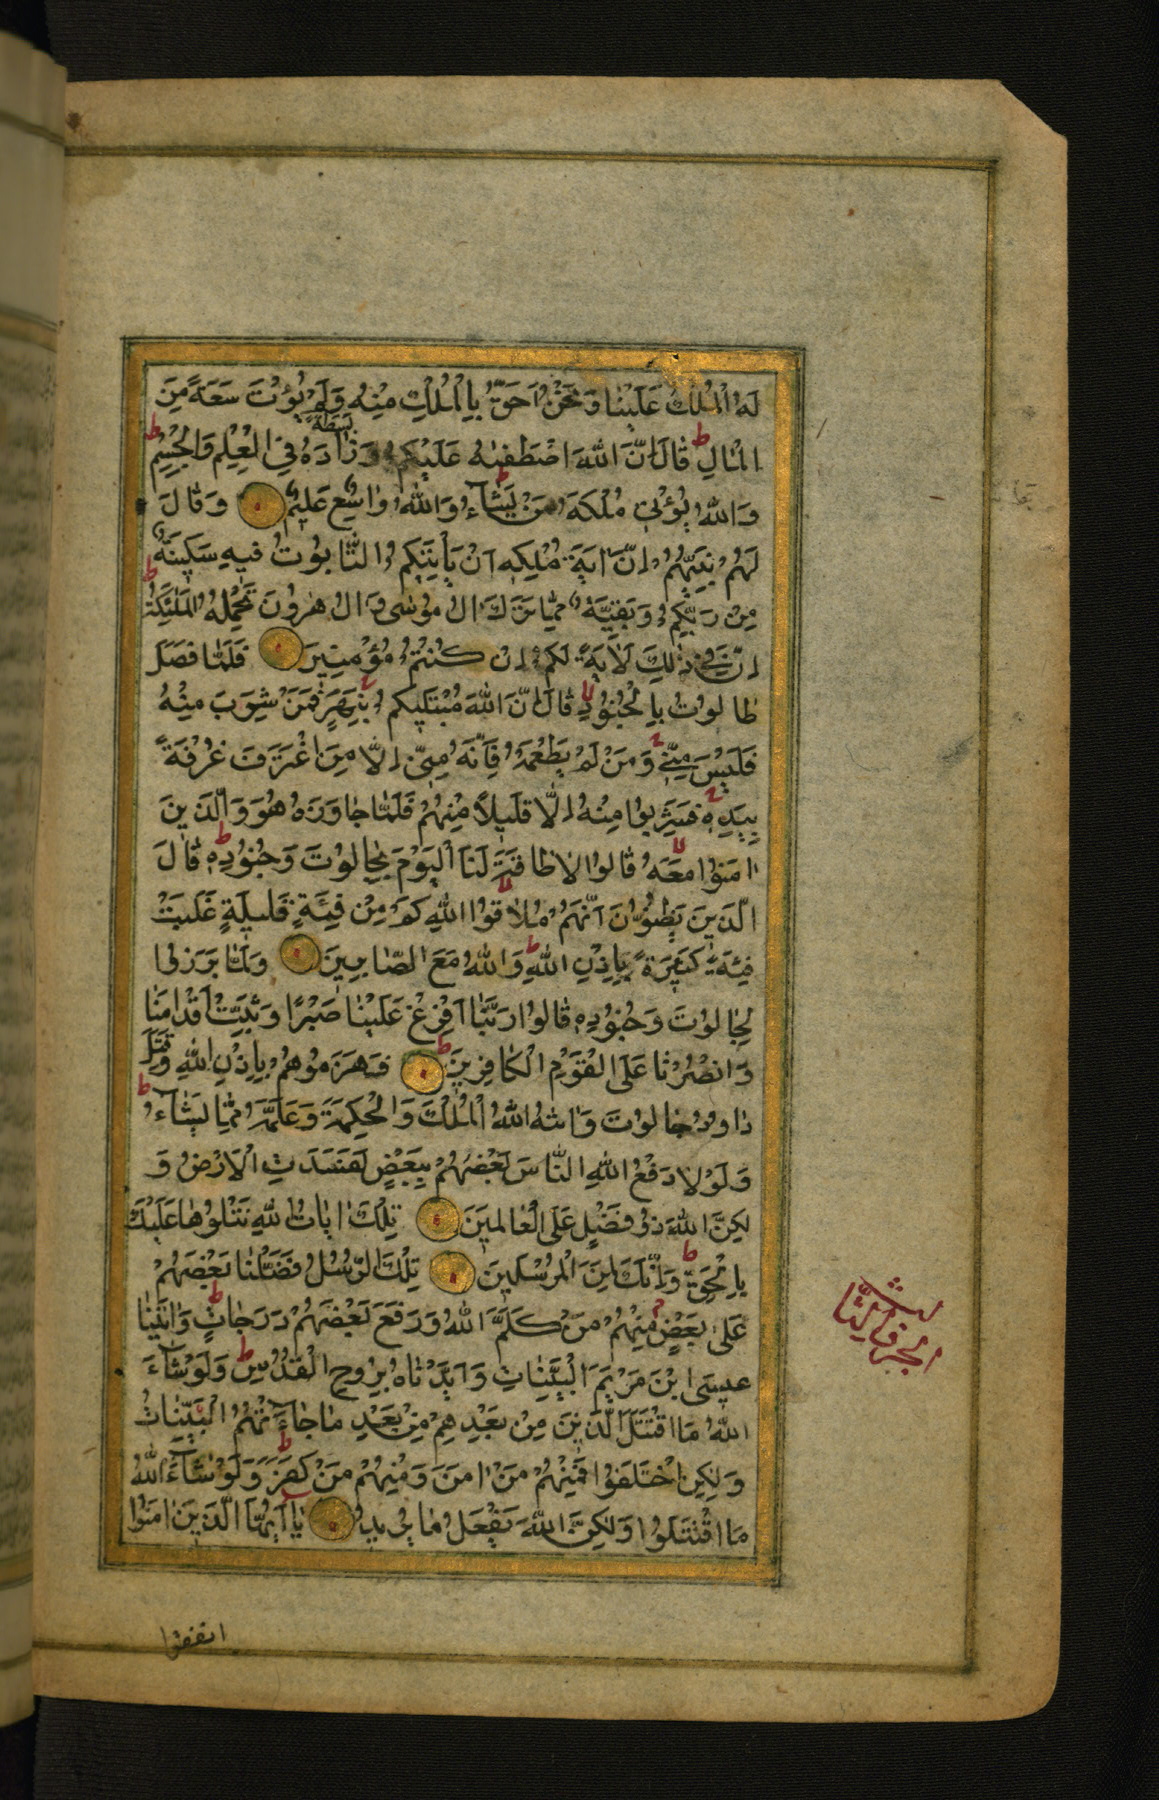 لَهُ الْمُلْكُ عَلَيْنَا وَنَحْنُ اَحَقُّ بِالْمُلْكِ مِنْهُ وَلَمْ يُؤْتَ سَعَةً مِنَ
الْمَالِ ط قَالَ اِنَّ اللّٰهَ اصْطَفٰیهُ عَلَيْكُمْ وَزَادَهُ بَسْطَةً فِي الْعِلْمِ وَالْجِسْمِ ط
وَاللّٰهُ يُؤْتِي مُلْكَهُ مَنْ يَشَاءُ ط وَاللّٰهُ وَاسِعٌ عَلِيمٌ وَقَالَ
لَهُمْ نَبِيُّهُمْ اِنَّ اٰيَةَ مُلْكِهِ اَنْ يَأْتِيَكُمُ التَّابُوتُ فِيهِ سَكِينَةٌ
مِنْ رَبِّكُمْ وَبَقِيَّةٌ مِمَّا تَرَكَ اٰلُ مُوسٰى وَاٰلُ هٰرُونَ تَحْمِلُهُ الْمَلٰئِكَةُ ط
اِنَّ فِي ذٰلِكَ لَاٰيَةً لَكُمْ اِنْ كُنْتُمْ مُؤْمِنِينَ فَلَمَّا فَصَلَ
طَالُوتُ بِالْجُنُودِ لا قَالَ اِنَّ اللّٰهَ مُبْتَلِيكُمْ بِنَهَرٍ ج فَمَنْ شَرِبَ مِنْهُ
فَلَيْسَ مِنِّي ج وَمَنْ لَمْ يَطْعَمْهُ فَاِنَّهُ مِنِّي اِلَّا مَنِ اغْتَرَفَ غُرْفَةً
بِيَدِهِ ج فَشَرِبُوا مِنْهُ اِلَّا قَلِيلًا مِنْهُمْ فَلَمَّا جَاوَزَهُ هُوَ وَالَّذِينَ
اٰمَنُوا مَعَهُ لا قَالُوا لَا طَاقَةَ لَنَا الْيَوْمَ بِجَالُوتَ وَجُنُودِهِ ط قَالَ
الَّذِينَ يَظُنُّونَ اَنَّهُمْ مُلَاقُوا اللّٰهِ لا كَمْ مِنْ فِئَةٍ قَلِيلَةٍ غَلَبَتْ
فِئَةً كَثِيرَةً بِاِذْنِ اللّٰهِ ط وَاللّٰهُ مَعَ الصَّابِرِينَ وَلَمَّا بَرَزُوا
لِجَالُوتَ وَجُنُودِهِ قَالُوا رَبَّنَا اَفْرِغْ عَلَيْنَا صَبْرًا وَثَبِّتْ اَقْدَامَنَا
وَانْصُرْنَا عَلَى الْقَوْمِ الْكَافِرِينَ ط فَهَزَمُوهُمْ بِاِذْنِ اللّٰهِ وَقَتَلَ
دَاوُدُ جَالُوتَ وَاٰتٰهُ اللّٰهُ الْمُلْكَ وَالْحِكْمَةَ وَعَلَّمَهُ مِمَّا يَشَاءُ ط
وَلَوْلَا دَفْعُ اللّٰهِ النَّاسَ بَعْضَهُمْ بِبَعْضٍ لَفَسَدَتِ الْاَرْضُ وَ
لٰكِنَّ اللّٰهَ ذُو فَضْلٍ عَلَى الْعَالَمِينَ تِلْكَ اٰيَاتُ اللّٰهِ نَتْلُوهَا عَلَيْكَ
بِالْحَقِّ ط وَاِنَّكَ لَمِنَ الْمُرْسَلِينَ تِلْكَ الرُّسُلُ فَضَّلْنَا بَعْضَهُمْ
عَلٰى بَعْضٍ م مِنْهُمْ مَنْ كَلَّمَ اللّٰهُ وَرَفَعَ بَعْضَهُمْ دَرَجَاتٍ ط وَاٰتَيْنَا
عِيسَى ابْنَ مَرْيَمَ الْبَيِّنَاتِ وَاَيَّدْنَاهُ بِرُوحِ الْقُدُسِ ط وَلَوْ شَاءَ
اللّٰهُ مَا اقْتَتَلَ الَّذِينَ مِنْ بَعْدِهِمْ مِنْ بَعْدِ مَا جَاءَتْهُمُ الْبَيِّنَاتُ
وَلٰكِنِ اخْتَلَفُوا فَمِنْهُمْ مَنْ اٰمَنَ وَمِنْهُمْ مَنْ كَفَرَ ط وَلَوْ شَاءَ اللّٰهُ
مَا اقْتَتَلُوا وَلٰكِنَّ اللّٰهَ يَفْعَلُ مَا يُرِيدُ يَا اَيُّهَا الَّذِينَ اٰمَنُوا
الجزء الثالث
انفقوا